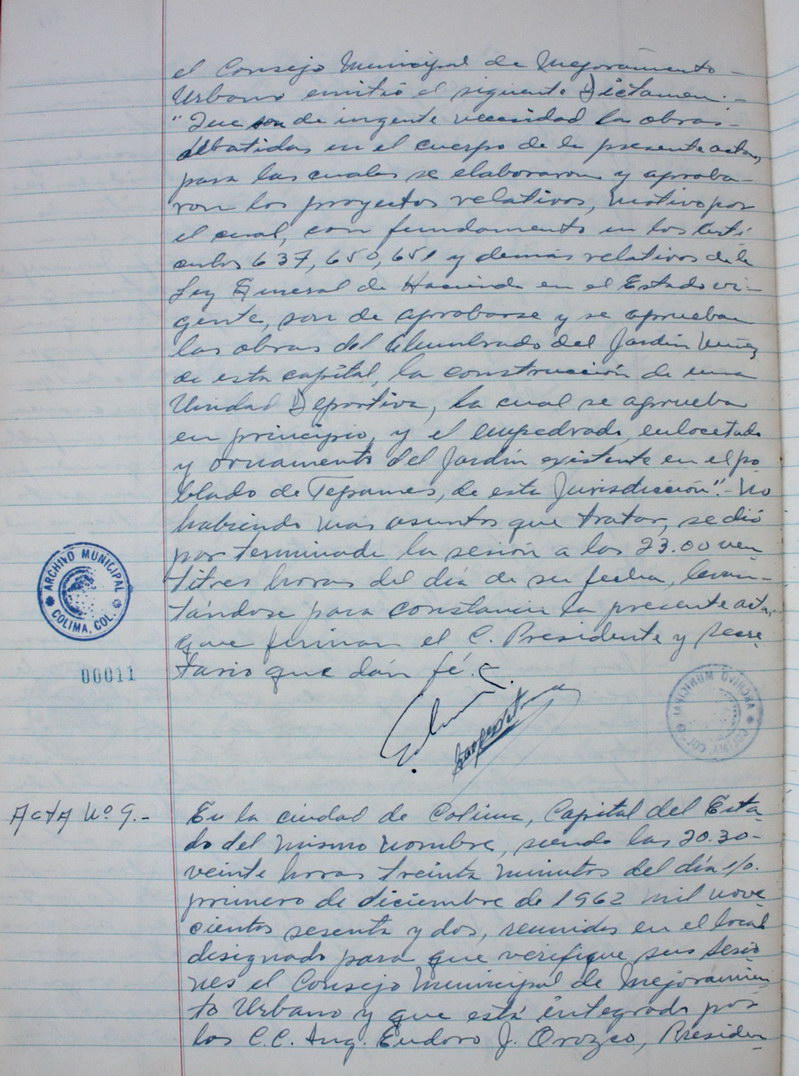 el Consejo Municipal de Mejoramiento
Urbano emitió el siguiente Dictamen:-
"Que son de ingente necesidad las obras
debatidas en el cuerpo de la presente acta,
para las cuales se elaboraron y aproba-
ron los proyectos relativos, motivo por
el cual, con fundamento en los artí
culos 637, 650, 651 y demás relativos de la
Ley General de Hacienda en el Estado vi-
gente, son de aprobarse y se aprueban
las obras del Alumbrado del Jardín Núñez
de esta capital, la construcción de una
Unidad Deportiva, la cual se aprueba
en principio, y el empedrado, enlocetado
y ornamento del Jardín existente en el po
blado de Tepames, de esta Jurisdicción".- No
habiendo más asuntos que tratar, se dió
por terminada la sesión a las 23.00 vein
titres horas del día de su fecha, levan-
tándose para constancia la presente acta,
que firman el C. Presidente y Secre
tario que dán fé.-
ARCHIVO MUNICIPAL
COLIMA, COL.
00011
ARCHIVO MUNICIPAL
COLIMA, COL.
Acta Nº 9.-
En la ciudad de Colima, Capital del Esta-
do del mismo nombre, siendo las 20.30-
veinte horas treinta minutos del día 1/o.
primero de diciembre de 1962 mil nove
cientos sesenta y dos, reunidos en el local
designado para que verifique sus sesio
nes el Consejo Municipal de Mejoramien
to Urbano y que está integrado por
los C.C. Ing. Eudoro J. Orozco, Presiden